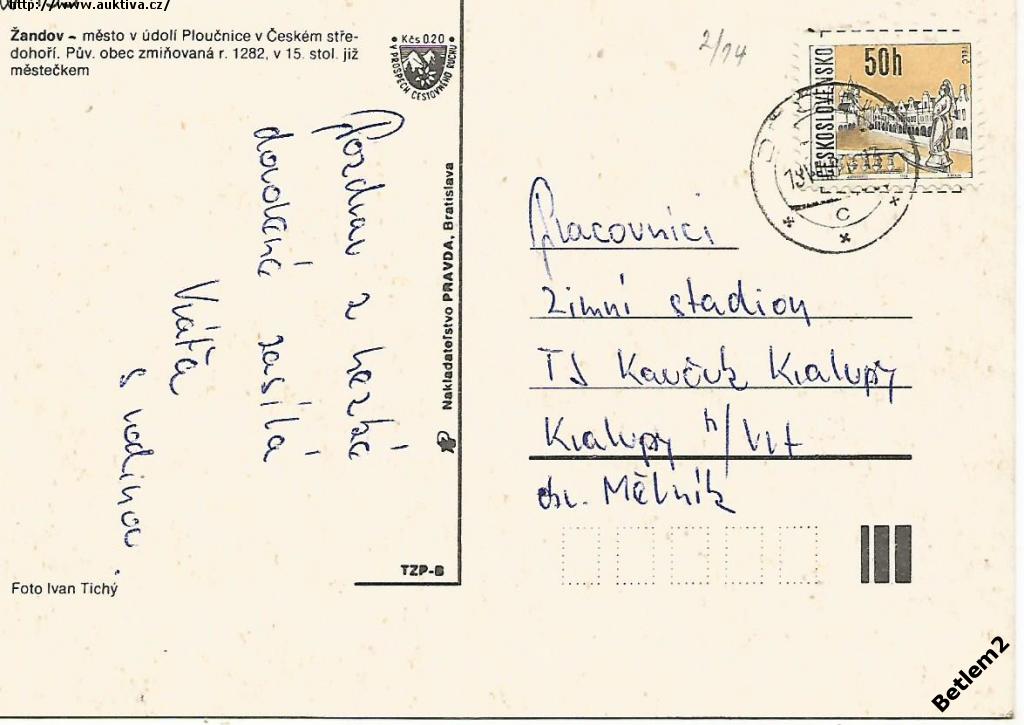 http://www.auktiva.cz/
Žandov – město v údolí Ploučnice v Českém stře-
dohoří. Pův. obec zmiňovaná r. 1282, v 15. stol. již
městečkem
Kčs 020
V PROSPĚCH CESTOVNÍHO RUCHU
2/14
50h
ČESKOSLOVENSKO
TELČ
C
Pozdrav z hezké
dovolené zasílá
Vráťa
s rodinou.
Nakladateľstvo PRAVDA, Bratislava
Pracovníci
Zimní stadion
TJ Kaučuk Kralupy
Kralupy n/Vlt
okr. Mělník
TZP-B
Foto Ivan Tichý
Betlem2